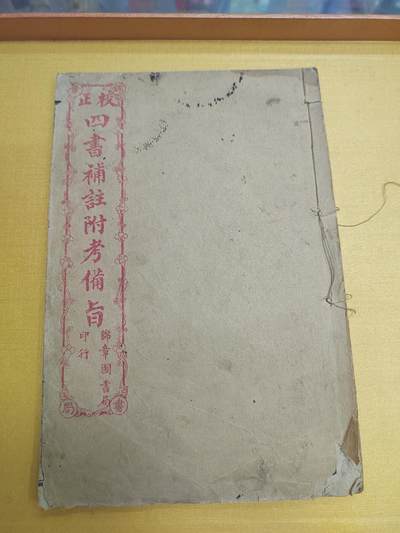 校正
四書補註附考備旨
錦章圖書局
印行
書局